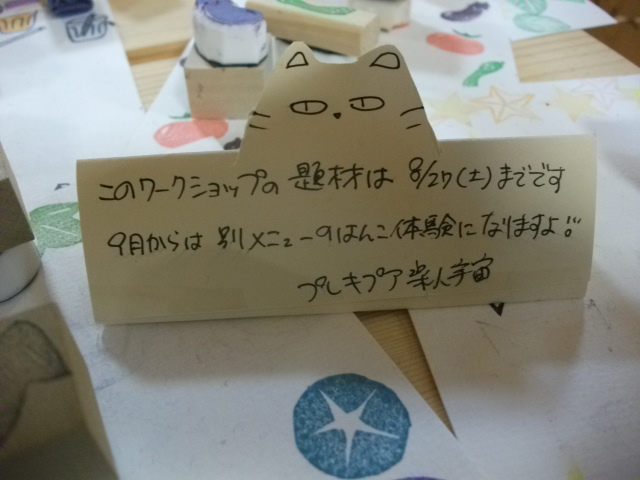 このワークショップの 題材は 8/27(土)までです
9月からは 別メニューのはんこ体験になりますよ!!
プレキプア楽人宇宙